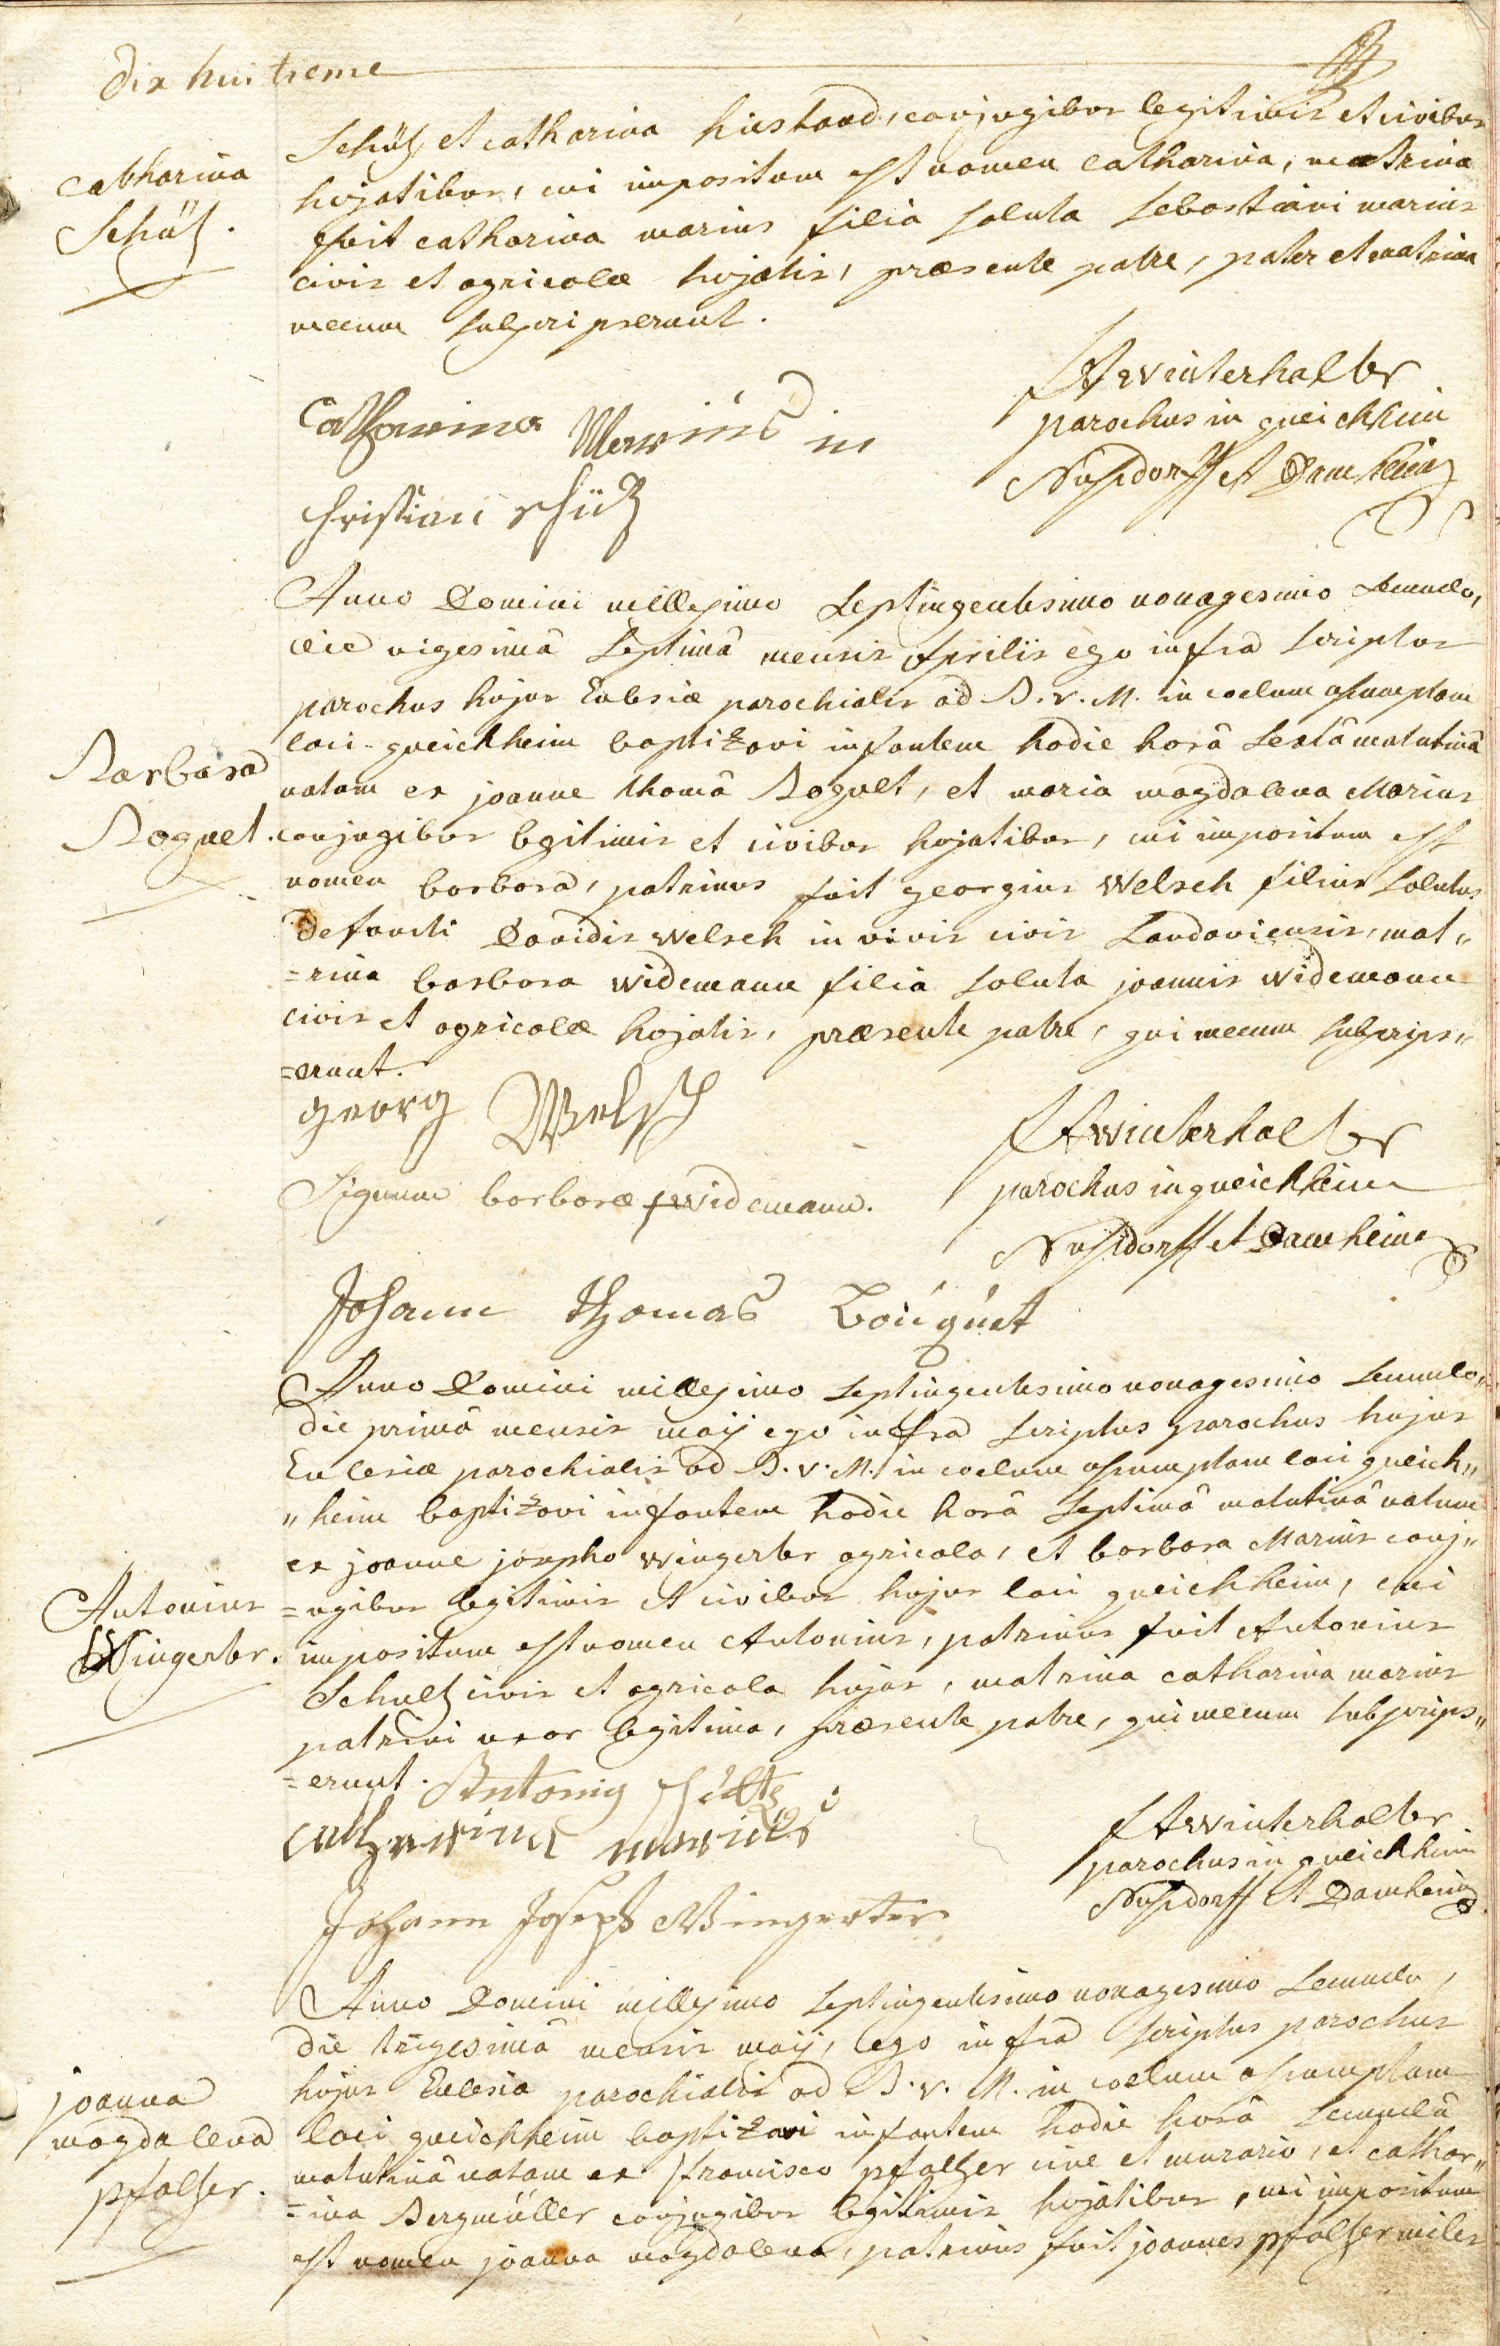 dix huitieme
Catharina
Schütz.
Schütz et catharina hiestand, conjugibus legitimis et civibus
hujatibus, cui impositum est nomen catharina, matrina
fuit catharina marius filia soluta sebastiani marius
civis et agricolæ hujatis, præsente patre, pater et matrina
mecum subscripserunt.
Catharina Mariusin
Christian schütz
FA winterhalter
parochus in queichheim
Nusdorff et Damheim
Anno Domini millesimo septingentesimo nonagesimo secundo,
die vigesimâ septimâ mensis aprilis ego infra scriptus
parochus hujus Ecclesiæ parochialis ad B. v. M. in coelum assumptam
loci queichheim baptizavi infantem hodie horâ sextâ matutinâ
Barbara
Boquet.
natam ex joanne thomâ Boquet, et maria magdalena Marius
conjugibus legitimis et civibus hujatibus, cui impositum est
nomen barbara, patrinus fuit georgius Welsch filius solutus
defuncti Davidis welsch in vivis civis Landaviensis, mat"
=rina barbara widemann filia soluta joannis widemann
civis et agricolæ hujatis, præsente patre, qui mecum subscrips"
=erunt.
georg Welsch
Signum barbaræ + widemann.
FA winterhalter
parochus in queichheim
Nusdorff et Damheim
Johann Thomas Bouquet
Anno Domini millesimo septingentesimo nonagesimo secundo,
die primâ mensis maij ego infra scriptus parochus hujus
Ecclesiæ parochialis ad B. v. M. in coelum assumptam loci queich"
"heim baptizavi infantem hodie horâ septimâ matutinâ natum
ex joanne josepho wingerter agricola, et barbara Marius conj"
Antonius
Wingerter.
=ugibus legitimis et civibus hujus loci queichheim, cui
impositum est nomen Antonius, patrinus fuit Antonius
Schultz civis et agricola hujas, matrina catharina marius
patrini uxor legitima, præsente patre, qui mecum subscrips"
=erunt. Antonig schültz
Catharina marius
Johann Joseph Wingerter
FA winterhalter
parochus in queichheim
Nusdorff et Damheim
Anno Domini millesimo septingentesimo nonagesimo secundo,
die trigesimâ mensis maij, ego infra scriptus parochus
hujus Ecclesia parochialis ad B. v. M. in coelum assumptam
joanna
magdalena
pfaltzer.
loci queichheim baptizavi infantem hodie horâ secundâ
matutinâ natam ex francisco pfaltzer cive et murario, et cathar"
=ina Bergmüller conjugibus legitimis hujatibus, cui impositum
est nomen joanna magdalena, patrinus fuit joannes pfaltzer miles